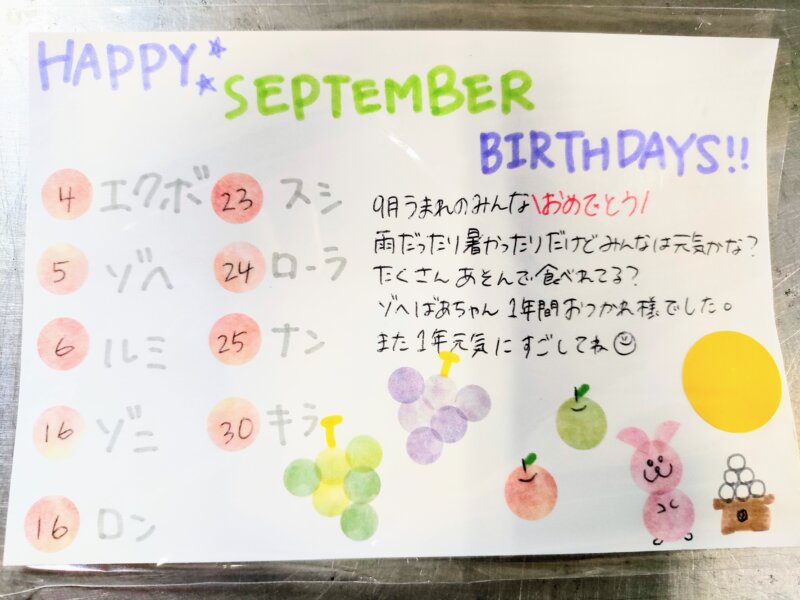 HAPPY
SEPTEMBER
BIRTHDAYS!!
4 エクボ
5 ゾペ
6 ルミ
16 ゾニ
16 ロン
23 スシ
24 ローラ
25 ナン
30 キラ
9月うまれのみんな\おめでとう/
雨だったり暑かったりだけどみんなは元気かな?
たくさんあそんで食べれてる?
ゾペばあちゃん1年間おつかれ様でした。
また1年元気にすごしてね